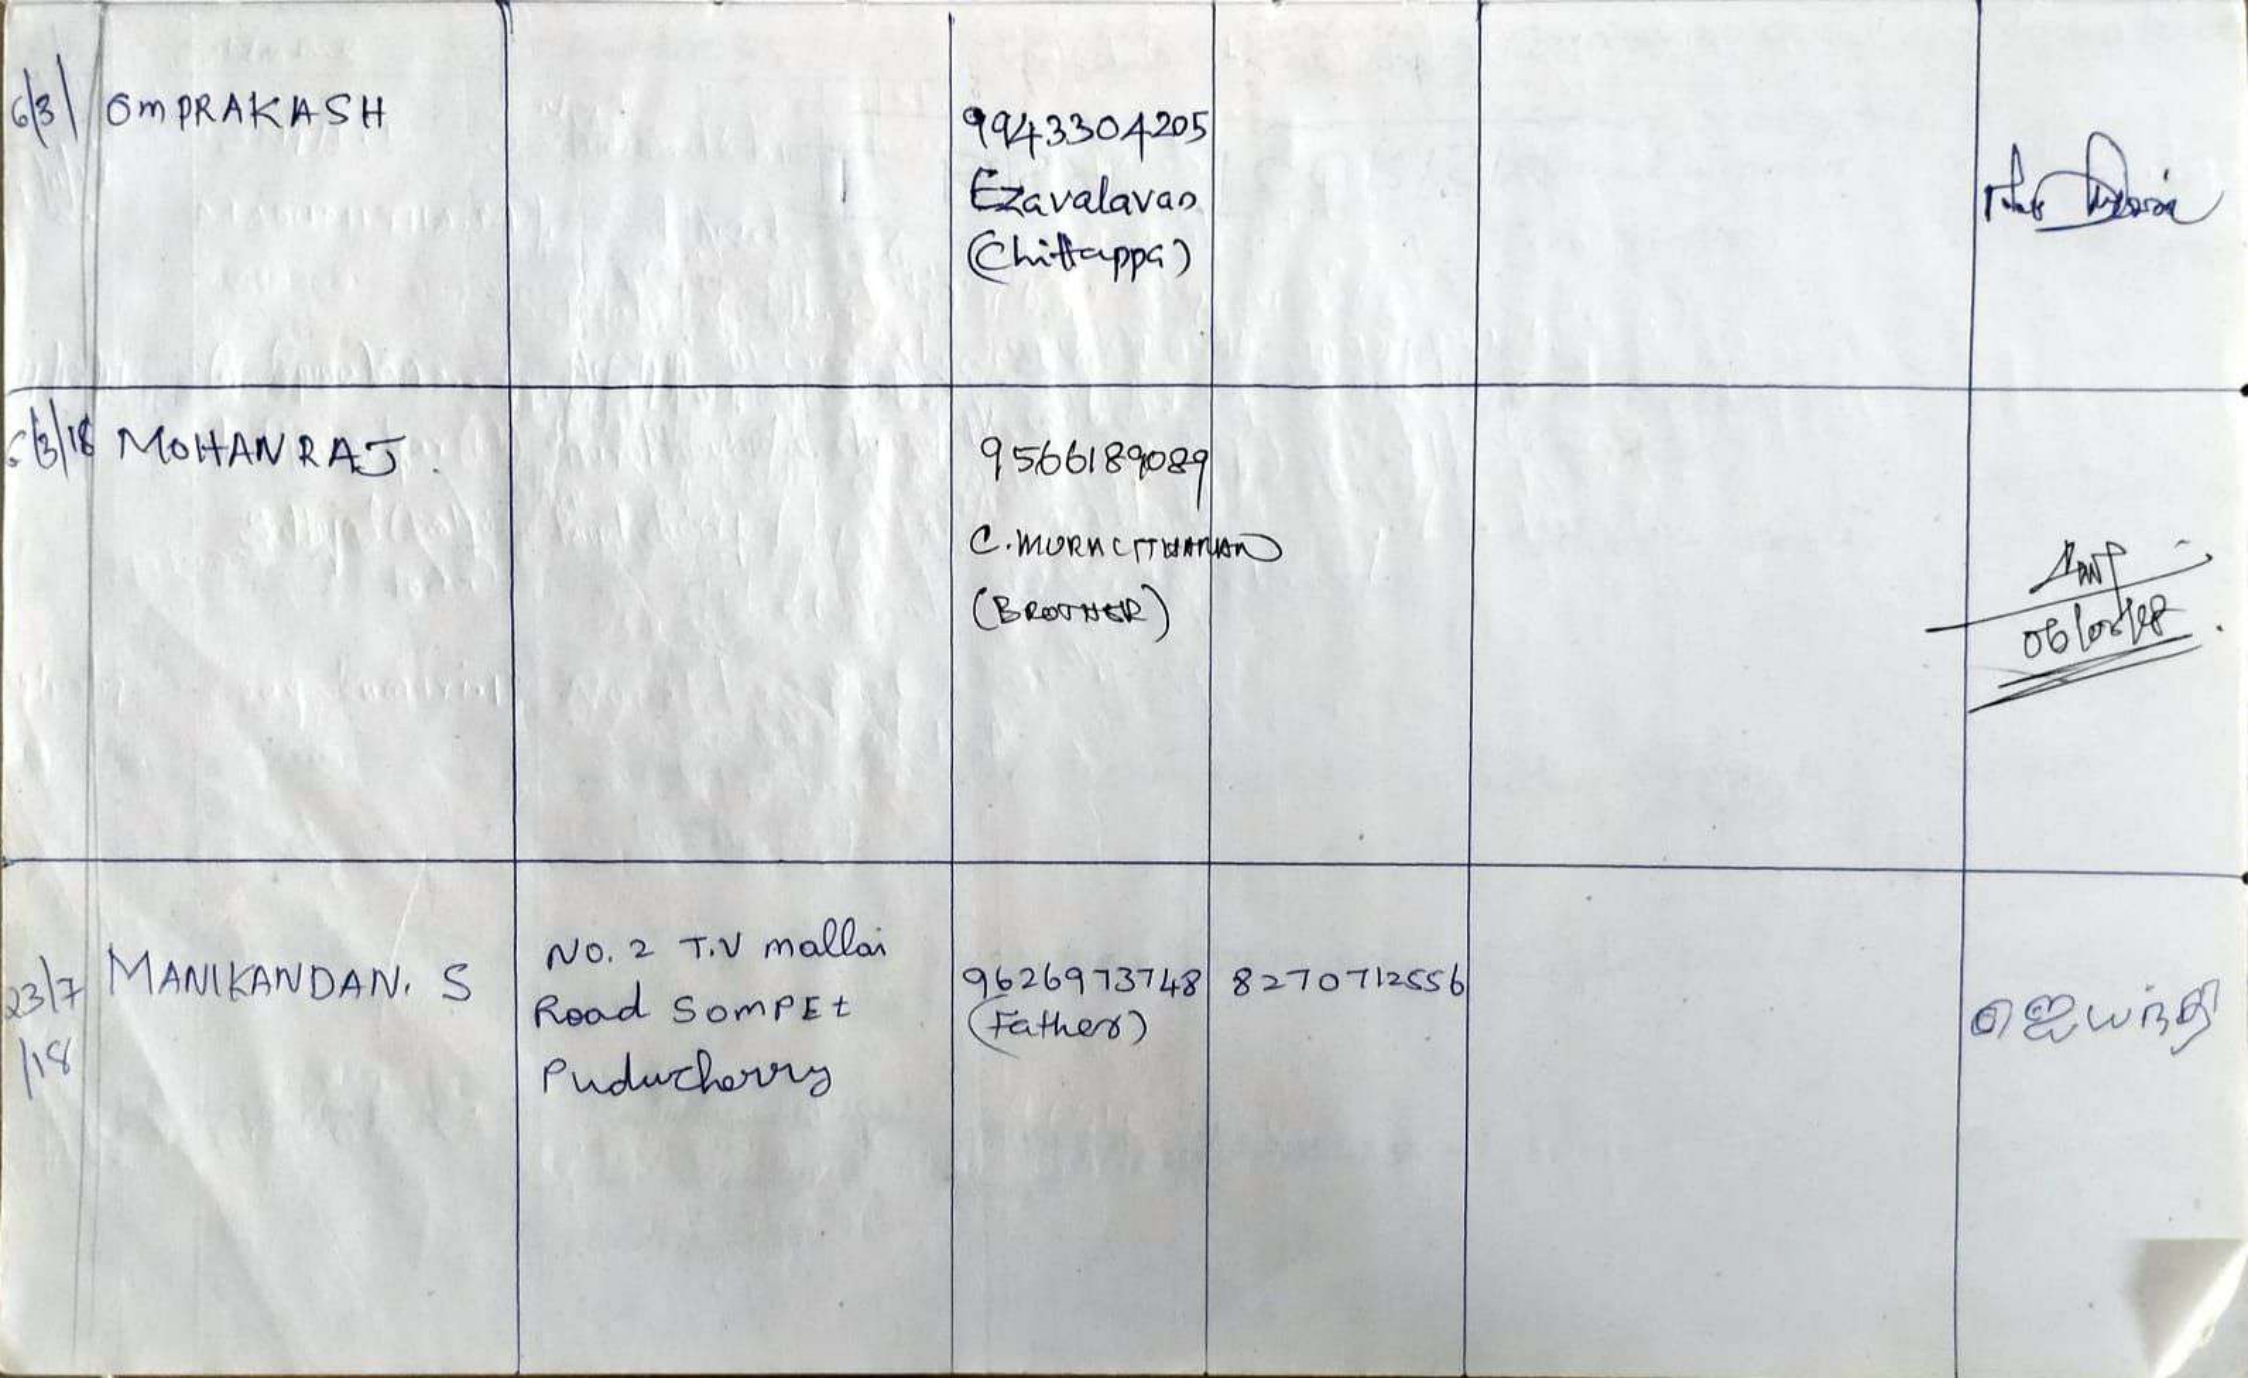 6/3/ OMPRAKASH
9943304205
Ezavalavan
(Chittappa)
6/3/18 MOHANRAJ.
9566189089
C. MURALITHARAN
(BROTHER)
06/03/18
23/7
/18
MANIKANDAN. S
No. 2 T.V mallai
Road SomPEt
Puducherry
9626973748
(Father)
8270712556
ஜெயந்தி